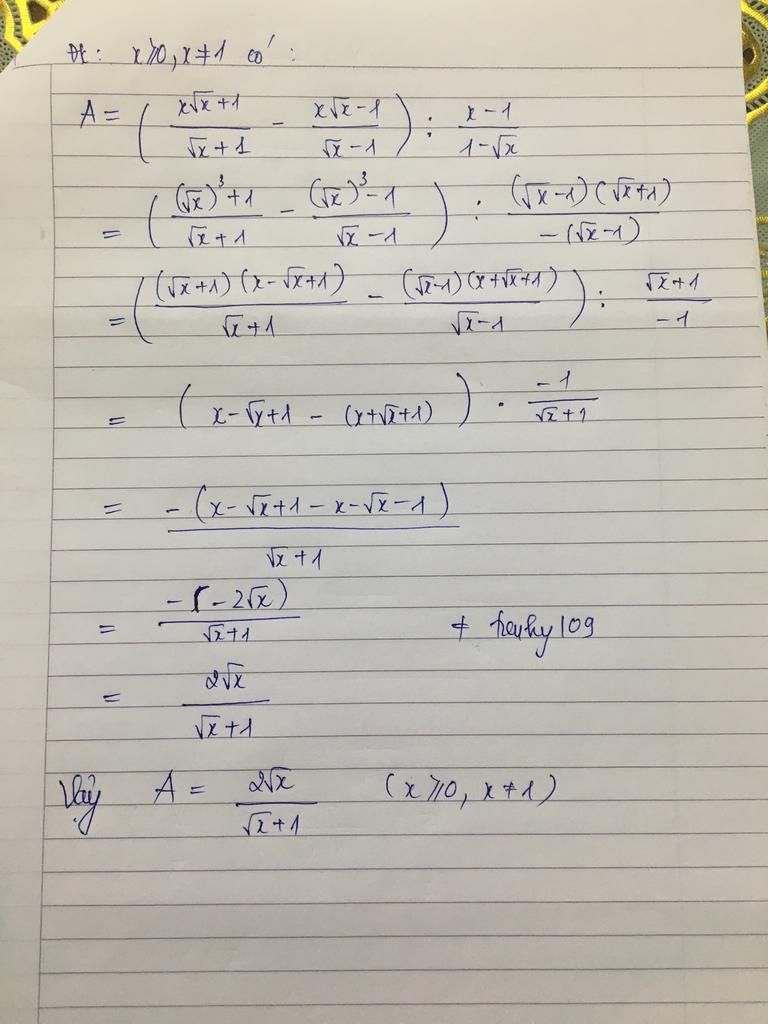 Đk : x ⩾ 0, x ≠ 1 có :
A = ( (x√x + 1)/(√x + 1) - (x√x - 1)/(√x - 1) ) : (x - 1)/(1 - √x)
= ( ((√x)³ + 1)/(√x + 1) - ((√x)³ - 1)/(√x - 1) ) : ((√x - 1)(√x + 1))/(-(√x - 1))
= ( ((√x + 1)(x - √x + 1))/(√x + 1) - ((√x - 1)(x + √x + 1))/(√x - 1) ) : (√x + 1)/(-1)
= ( x - √x + 1 - (x + √x + 1) ) . (-1)/(√x + 1)
= (-(x - √x + 1 - x - √x - 1))/(√x + 1)
= (-(-2√x))/(√x + 1)
= (2√x)/(√x + 1)
Vậy A = (2√x)/(√x + 1) (x ⩾ 0, x ≠ 1)